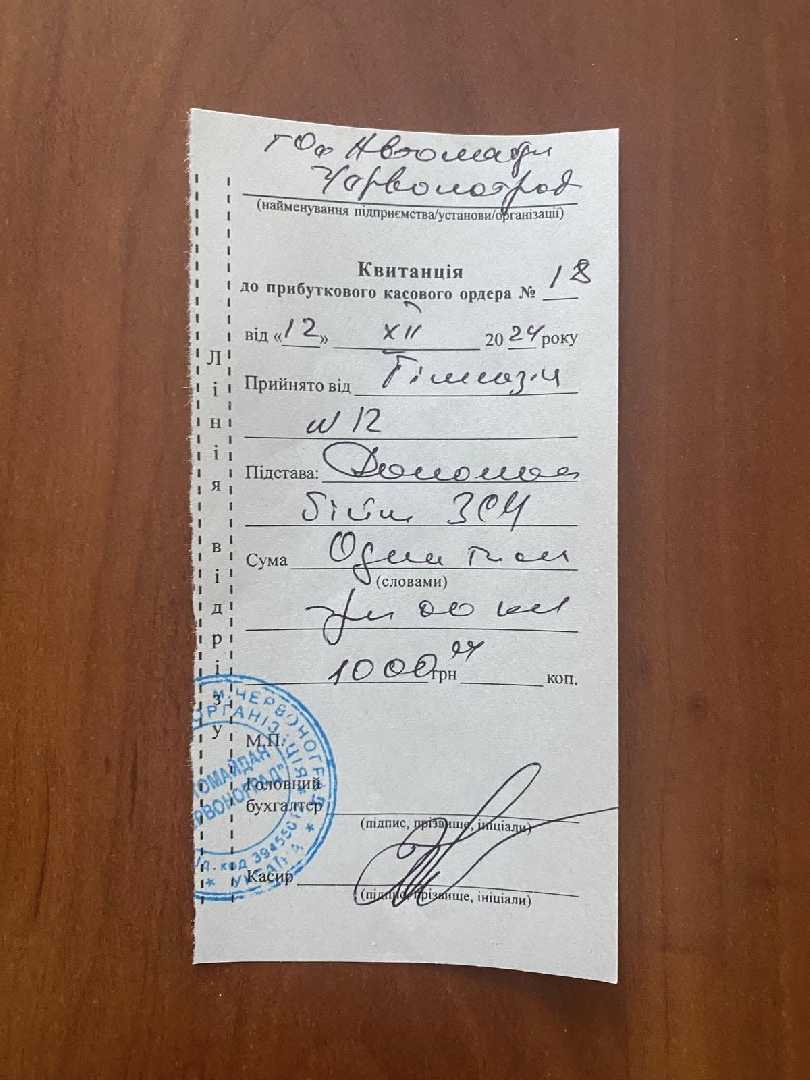 ГОф Автомайдан
Червоноград
(найменування підприємства/установи/організації)
Квитанція
до прибуткового касового ордера № 18
від «12» XII 2024 року
Прийнято від Гімназія
№ 12
Підстава: Допомога
ЗСУ
Сума Одна тисяча
(словами)
грн 00 коп
1000 грн коп.
М.П.
Головний
бухгалтер
(підпис, прізвище, ініціали)
Касир
(підпис, прізвище, ініціали)
Лінія відрізу
М.ЧЕРВОНОГРАД
ОРГАНІЗАЦІЯ
ТОМАЙДАН
РВОНОГРАД"
код 394550
УКРАЇНА